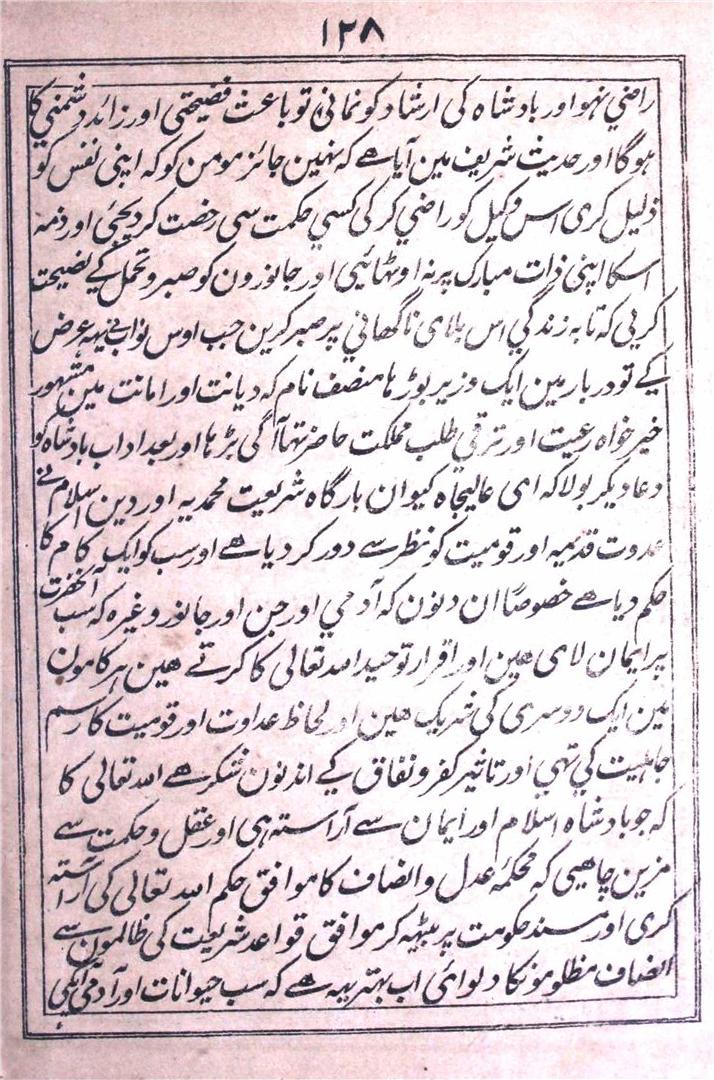 ۱۲۸
راضي نہو اور بادشاہ کی ارشاد کو نمانی تو باعث فضیحتی اور زائد دشمني کا
ہوگا اور حدیث شریف مین آیا ھے کہ نہین جائز مومن کو کہ اپنی نفس کو
ذلیل کری اس وکیل کو راضي کر کی کسي حکمت سی رخصت کر دیجئی اور ذمہ
اسکا اپنی ذات مبارک پر نہ اوٹہائیی اور جانورون کو صبر و تحمل کے نصیحت
کریی کہ تا بہ زندگي اس بلای ناگھاني پر صبر کرین جب اوس نواب نے یہہ عرض
کے تو دربار مین ایک وزیر بوڑہا منصف نام کہ دیانت اور امانت مین مشہور
خیرخواہ رعیت اور ترقي طلب مملکت حاضر تہا آگی بڑہا اور بعد اداب بادشاہ کو
دعا دیکر بولا کہ ای عالیجاہ کیوان بارگاہ شریعت محمدیہ اور دین اسلام نے
عدوت قدیمہ اور قومیت کو نظر سے دور کر دیا ھے اور سب کو ایک کام کا
حکم دیا ھے خصوصًا ان دنون کہ آدمي اور جن اور جانور وغیرہ کہ سب آنحضرت
پر ایمان لای ھین اور اقرار توحید اللہ تعالی کا کرتے ھین ہر کامون
مین ایک دوسری کی شریک ھین اور لحاظ عداوت اور قومیت کا رسم
جاہلیت کي تہي اور تاثیر کفر و نفاق کے اندنون شکر ھے اللہ تعالی کا
کہ جو بادشاہ اسلام اور ایمان سے آراستہ ہی اور عقل و حکمت سے
مزین چاھیی کہ محکمۂ عدل و انصاف کا موافق حکم اللہ تعالی کی آراستہ
کری اور مسند حکومت پر بیٹہہ کر موافق قواعد شریعت کی ظالمون سے
انصاف مظلومونکا دلوائی اب بہتر یہہ ھے کہ سب حیوانات اور آدمي